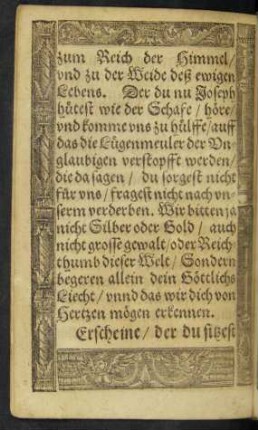 zum Reich der Himmel/
vnd zu der Weide deß ewigen
Lebens. Der du nu Joseph
hütest wie der Schafe / höre/
vnd komme vns zu hülffe/auff
das die Lügenmeuler der Vn-
glaubigen verstopffe werden/
die da sagen / du sorgest nicht
für vns / fragest nicht nach vn-
serm verderben. Wir bitten ja
nicht Silber oder Gold / auch
nicht grosse gewalt / oder Reich-
thumb dieser Welt / Sondern
begeren allein dein Göttlichs
Liecht / vnnd das wir dich von
Hertzen mögen erkennen.
Erscheine / der du sitzest